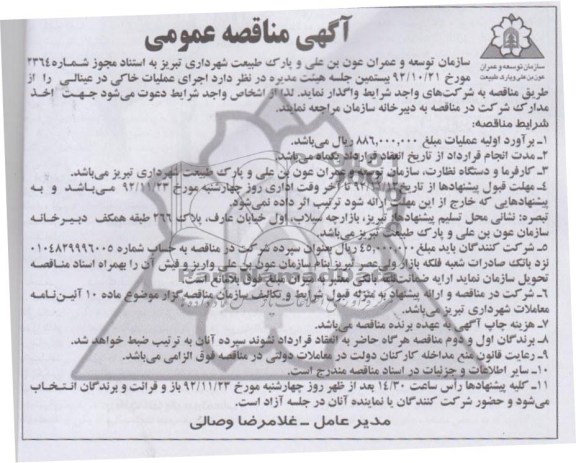 آگهی مناقصه عمومی
سازمان توسعه و عمران
عون بن علی و پارک طبیعت
سازمان توسعه و عمران عون بن علی و پارک طبیعت شهرداری تبریز به استناد مجوز شماره ۲۳۶۴
مورخ ۹۲/۱۰/۲۱ بیستمین جلسه هیئت مدیره در نظر دارد اجرای عملیات خاکی در عینالی را از
طریق مناقصه به شرکت‌های واجد شرایط واگذار نماید. لذا از اشخاص واجد شرایط دعوت می‌شود جهت اخذ
مدارک شرکت در مناقصه به دبیرخانه سازمان مراجعه نمایند.
شرایط مناقصه:
۱ـ برآورد اولیه عملیات مبلغ ۸۸۶,۰۰۰,۰۰۰ ریال می‌باشد.
۲ـ مدت انجام قرارداد از تاریخ انعقاد قرارداد یکماه می‌باشد.
۳ـ کارفرما و دستگاه نظارت، سازمان توسعه و عمران عون بن علی و پارک طبیعت شهرداری تبریز می‌باشد.
۴ـ مهلت قبول پیشنهادها از تاریخ تا آخر وقت اداری روز چهارشنبه مورخ ۹۲/۱۱/۲۳ می‌باشد و به
پیشنهادهایی که خارج از این مهلت ارائه شود ترتیب اثر داده نمی‌شود.
تبصره: نشانی محل تسلیم پیشنهادها: تبریز، بازارچه سیلاب، اول خیابان عارف، پلاک ۳۶۶ طبقه همکف دبیرخانه
سازمان عون بن علی و پارک طبیعت تبریز می‌باشد.
۵ـ شرکت کنندگان باید مبلغ ۴۵,۰۰۰,۰۰۰ ریال بعنوان سپرده شرکت در مناقصه به حساب شماره ۰۱۰۴۸۳۹۹۹۶۰۰۵
نزد بانک صادرات شعبه فلکه بازار ولی عصر تبریز بنام سازمان عون بن علی واریز و فیش آن را بهمراه اسناد مناقصه
تحویل سازمان نماید ارایه ضمانت نامه بانکی معتبر به میزان مبلغ فوق بلامانع است.
۶ـ شرکت در مناقصه و ارائه پیشنهاد به منزله قبول شرایط و تکالیف سازمان مناقصه گزار موضوع ماده ۱۰ آئین‌نامه
معاملات شهرداری تبریز می‌باشد.
۷ـ هزینه چاپ آگهی به عهده برنده مناقصه می‌باشد.
۸ـ برندگان اول و دوم مناقصه هرگاه حاضر به انعقاد قرارداد نشوند سپرده آنان به ترتیب ضبط خواهد شد.
۹ـ رعایت قانون منع مداخله کارکنان دولت در معاملات دولتی در مناقصه فوق الزامی می‌باشد.
۱۰ـ سایر اطلاعات و جزئیات در اسناد مناقصه مندرج است.
۱۱ـ کلیه پیشنهادها رأس ساعت ۱۴/۳۰ بعد از ظهر روز چهارشنبه مورخ ۹۲/۱۱/۲۳ باز و قرائت و برندگان انتخاب
می‌شود و حضور شرکت کنندگان یا نماینده آنان در جلسه آزاد است.
مدیر عامل ـ غلامرضا وصالی